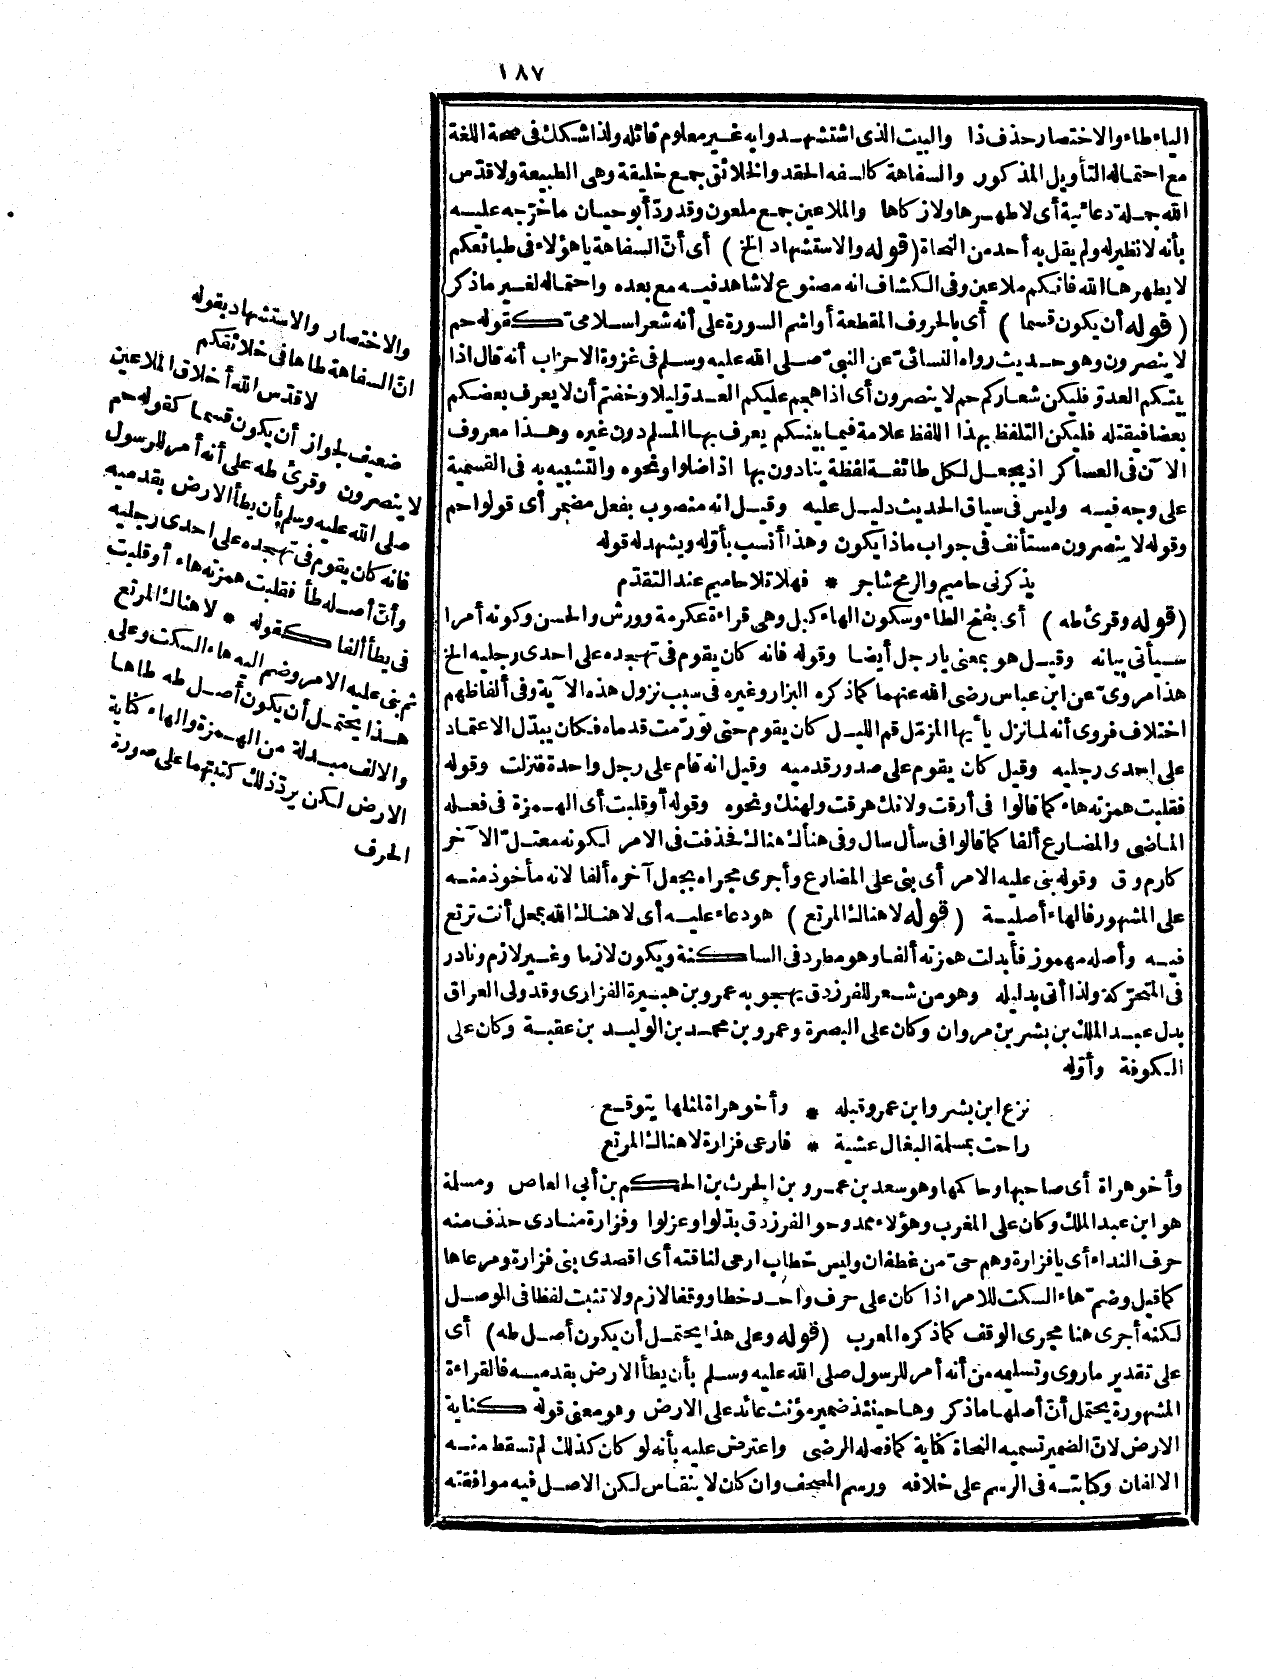 ١٨٧
الياء طاء والاختصار حذف ذا والبيت الذى استشهدوا به غير معلوم قائله ولذا شكك فى صحة اللغة
مع احتماله التأويل المذكور والسفاهة كالسفه الحقد والخلائق جمع خليقة وهى الطبيعة ولا قدّس
الله جملة دعائية أى لا طهرها ولا زكاها والملاعين جمع ملعون وقد ردّ أبو حيان ما خرّجه عليه
بأنه لا نظير له ولم يقل به أحد من النحاة (قوله والاستشهاد الخ) أى أنّ السفاهة يا هؤلاء فى طبائعكم
لا يطهرها الله فانكم ملاعين وفى الكشاف انه مصنوع لا شاهد فيه مع بعده واحتماله لغير ما ذكر
(قوله أن يكون قسما) أى بالحروف المقطعة أو اسم السورة على أنه شعر اسلامى كقوله حم
لا ينصرون وهو حديث رواه النسائى عن النبىّ صلى الله عليه وسلم فى غزوة الاحزاب أنه قال اذا
بيتكم العدوّ فليكن شعاركم حم لا ينصرون أى اذا هجم عليكم العدوّ ليلا وخفتم أن لا يعرف بعضكم
بعضا فيقتله فليكن التلفظ بهذا اللفظ علامة فيما بينكم يعرف بها المسلم دون غيره وهذا معروف
الآن فى العساكر اذ يجعل لكل طائفة لفظة ينادون بها اذا ضلوا ونحوه والتشبيه به فى القسمية
على وجه فيه وليس فى سياق الحديث دليل عليه وقيل انه منصوب بفعل مضمر أى قولوا حم
وقوله لا ينصرون مستأنف فى جواب ماذا يكون وهذا أنسب بأوّله ويشهد له قوله
يذكرنى حاميم والرمح شاجر * فهلا تلا حاميم عند التقدّم
(قوله وقرئ طه) أى بفتح الطاء وسكون الهاء كبل وهى قراءة عكرمة وورش والحسن وكونه أمرا
سيأتى بيانه وقيل هو بمعنى يا رجل أيضا وقوله فانه كان يقوم فى تهجده على احدى رجليه الخ
هذا مروىّ عن ابن عباس رضى الله عنهما كما ذكره البزار وغيره فى سبب نزول هذه الآية وفى ألفاظهم
اختلاف فروى أنه لما نزل يا أيها المزمّل قم الليل كان يقوم حتى تورّمت قدماه فكان يبدّل الاعتماد
على احدى رجليه وقيل كان يقوم على صدور قدميه وقيل انه قام على رجل واحدة فنزلت وقوله
فقلبت همزته هاء كما قالوا فى أرقت ولانك هرقت ولهنك ونحوه وقوله أو قلبت أى الهمزة فى فعله
الماضى والمضارع ألفا كما قالوا فى سأل سال وفى هنأك هناك فحذفت فى الامر لكونه معتلّ الآخر
كارم وق وقوله بنى عليه الامر أى بنى على المضارع وأجرى مجراه بجعل آخره ألفا لانه مأخوذ منه
على المشهور فالهاء أصلية (قوله لا هناك المرتع) هو دعاء عليه أى لا هناك الله بمعل أنت ترتع
فيه وأصله مهموز فأبدلت همزته ألفا وهو مطرد فى الساكنة ويكون لازما وغير لازم ونادر
فى المتحرّكة ولذا أتى بدليله وهو من شعر للفرزدق يهجو به عمرو بن هبيرة الفزارى وقد ولى العراق
بدل عبد الملك بن بشر بن مروان وكان على البصرة وعمرو بن محمد بن الوليد بن عقبة وكان على
الكوفة وأوّله
نزع ابن بشر وابن عمرو قبله * وأخو هراة لمثلها يتوقع
راحت بمسلمة البغال عشية * فارعى فزارة لا هناك المرتع
وأخو هراة أى صاحبها وحاكمها وهو سعد بن عمرو بن الحرث بن الحكم بن أبى العاص ومسلمة
هو ابن عبد الملك وكان على المغرب وهؤلاء ممدوحو الفرزدق بدّلوا وعزلوا وفزارة منادى حذف منه
حرف النداء أى يا فزارة وهم حىّ من غطفان وليس خطاب ارعى لناقته أى اقصدى بنى فزارة ومرعاها
كما قيل وضمّ هاء السكت للامر اذا كان على حرف واحد خطا ووقفا لازم ولا تثبت لفظا فى الوصل
لكنه أجرى هنا مجرى الوقف كما ذكره المعرب (قوله وعلى هذا يحتمل أن يكون أصل طه) أى
على تقدير ما روى وتسليمه من أنه أمر للرسول صلى الله عليه وسلم بأن يطأ الارض بقدميه فالقراءة
المشهورة يحتمل أنّ أصلها ما ذكر وها حينئذ ضمير مؤنث عائد على الارض وهو معنى قوله كناية
الارض لانّ الضمير تسميه النحاة كناية كما فصله الرضى واعترض عليه بأنه لو كان كذلك لم تسقط منه
الالفان وكتابته فى الرسم على خلافه ورسم المصحف وان كان لا ينقاس لكن الاصل فيه موافقته
والاختصار والاستشهاد بقوله
انّ السفاهة طاها فى خلائقكم
لا قدّس الله أخلاق الملاعين
ضعيف لجواز أن يكون قسما كقوله حم
لا ينصرون وقرئ طه على أنه أمر للرسول
صلى الله عليه وسلم بأن يطأ الارض بقدميه
فانه كان يقوم فى تهجده على احدى رجليه
وأنّ أصله طأ فقلبت همزته هاء أو قلبت
فى يطأ ألفا كقوله * لا هناك المرتع
ثم بنى عليه الامر وضم اليه هاء السكت وعلى
هذا يحتمل أن يكون أصل طه طاها
والالف مبدلة من الهمزة والهاء كناية
الارض لكن يردّ ذلك كتبتهما على صورة
الحرف